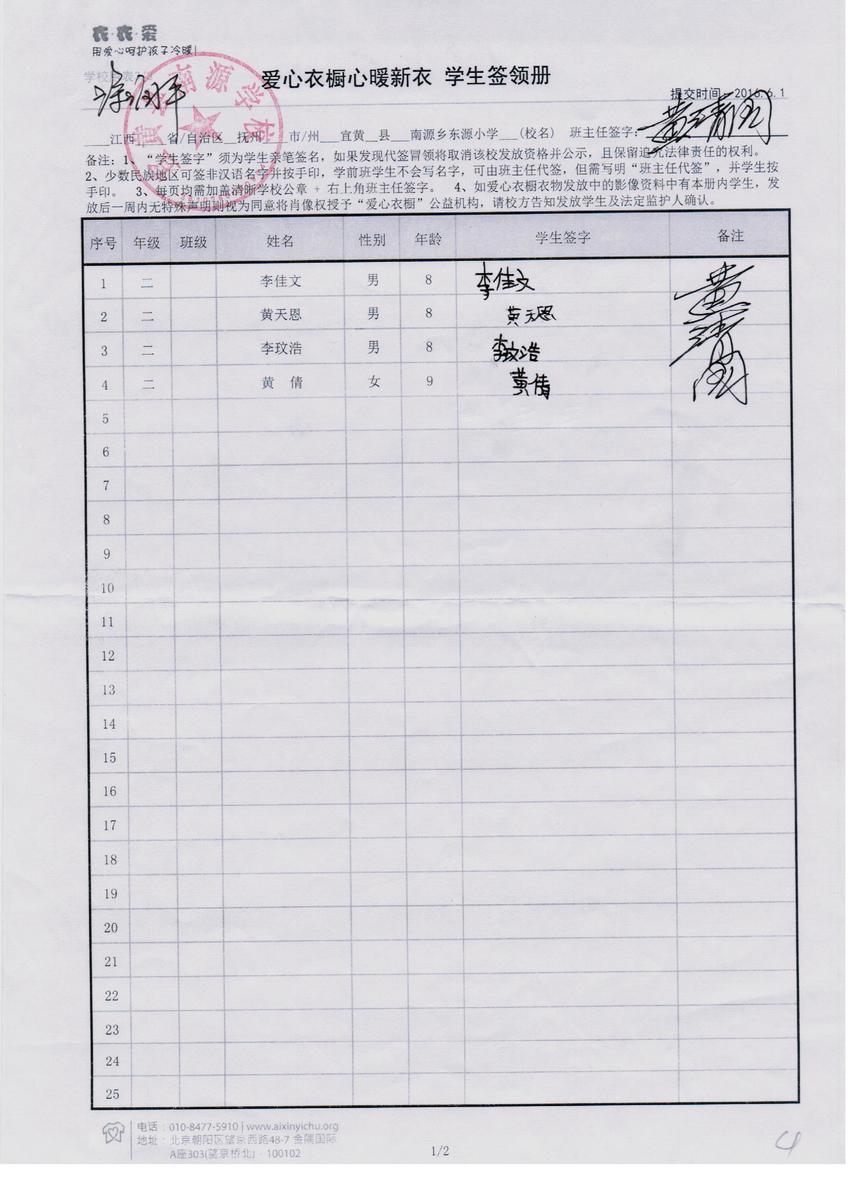 衣·衣·爱
用爱心呵护孩子冷暖!
学校
爱心衣橱心暖新衣 学生签领册
提交时间: 2016.6.1
南源学校
江西 省/自治区 抚州 市/州 宜黄 县 南源乡东源小学 (校名) 班主任签字:
备注: 1、“学生签字”须为学生亲笔签名,如果发现代签冒领将取消该校发放资格并公示,且保留追究法律责任的权利。
2、少数民族地区可签非汉语名字并按手印,学前班学生不会写名字,可由班主任代签,但需写明“班主任代签”,并学生按
手印。 3、每页均需加盖清晰学校公章 + 右上角班主任签字。 4、如爱心衣橱衣物发放中的影像资料中有本册内学生,发
放后一周内无特殊声明则视为同意将肖像权授予“爱心衣橱”公益机构,请校方告知发放学生及法定监护人确认。
序号 年级 班级 姓名 性别 年龄 学生签字 备注
1 二 李佳文 男 8 李佳文
2 二 黄天恩 男 8 黄天恩
3 二 李玟浩 男 8 李玟浩
4 二 黄 倩 女 9 黄倩
5
6
7
8
9
10
11
12
13
14
15
16
17
18
19
20
21
22
23
24
25
电话 : 010-8477-5910 | www.aixinyichu.org
地址 : 北京朝阳区望京西路48-7 金隅国际
A座303(望京桥北) · 100102
1/2
4